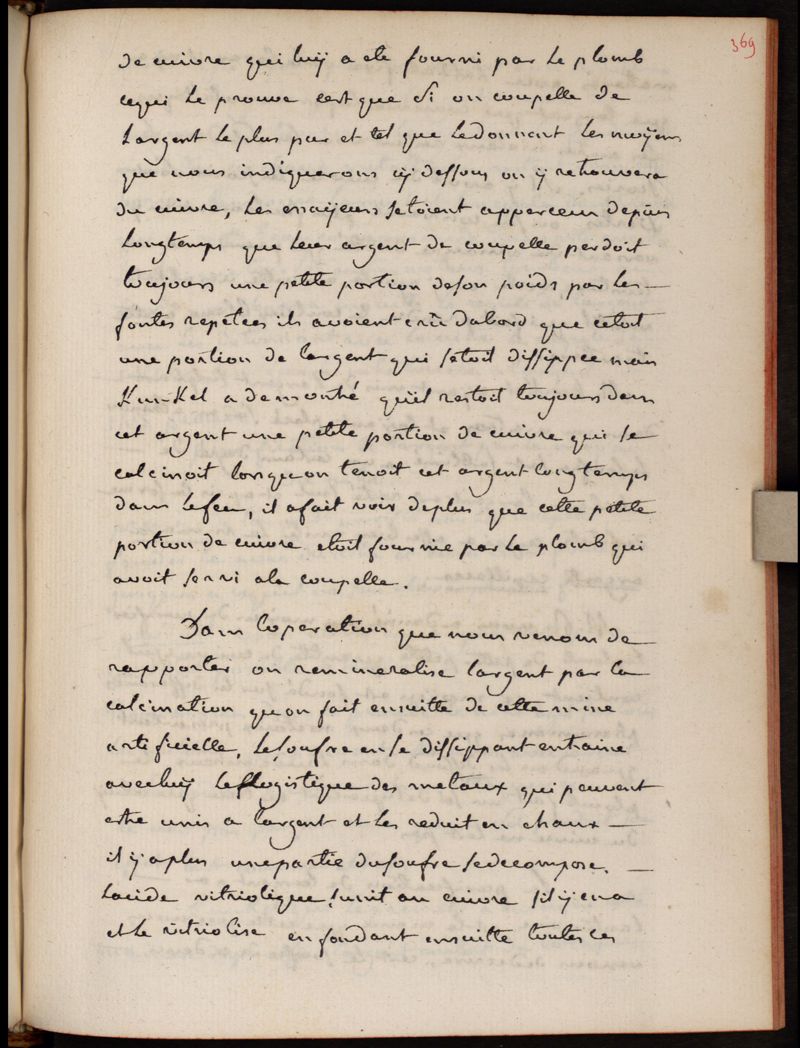 369
de cuivre qui luÿ a ete fourni par le plomb
cequi le prouve cest que si on coupelle de
Largent le plus pur et tel que ledonnent les moÿens
que nous indiquerons cÿ dessous on ÿ retrouvera
du cuivre, les essaÿeurs setoient apperceu depuis
Longtemps que leur argent de coupelle perdoit
toujours une petite portion deson poids par les —
fontes repetées ils avoient crû dabord que cetoit
une portion de largent qui setoit dissippée mais
Kunkel a demontré quil restoit toujours dans
cet argent une petite portion de cuivre qui se
calcinoit lorsquon tenoit cet argent longtemps
dans lefeu, il afait voir deplus que cette petite
portion de cuivre etoit fournie par le plomb qui
avoit servi ala coupelle.
Dans loperation que nous venons de
rapporter on remineralise largent par la
calcination quon fait ensuitte de cette mine
artificielle, Lesoufre en se dissippant entraine
avecluÿ leflogistique des metaux qui peuvent
estre unis a largent et les reduit en chaux —
il ÿ aplus unepartie dusoufre sedecompose. —
Lacide vitriolique sunit au cuivre sil ÿ en a
et le vitriolise en fondant ensuitte toutes ces